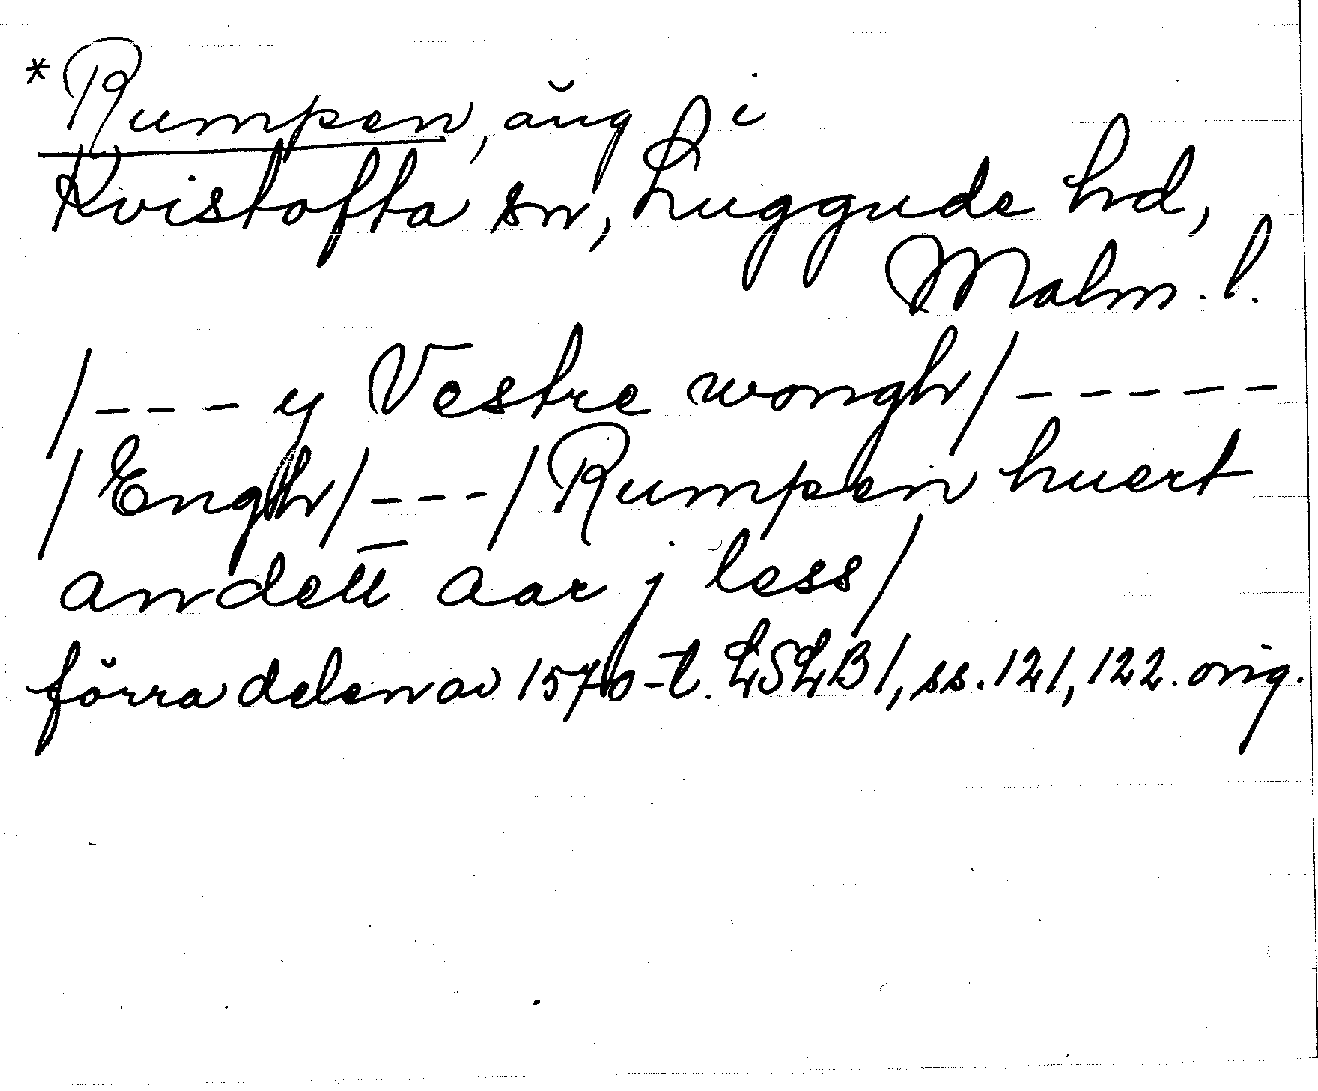 *Rumpen, äng i
Kvistofta sn, Luggude hd,
Malm. l.
/--- y Vestre wongh/-----
/Engh/---/Rumpen huert
andett aar j less/
förra delen av 1570-t. LSLB1, ss. 121, 122. orig.